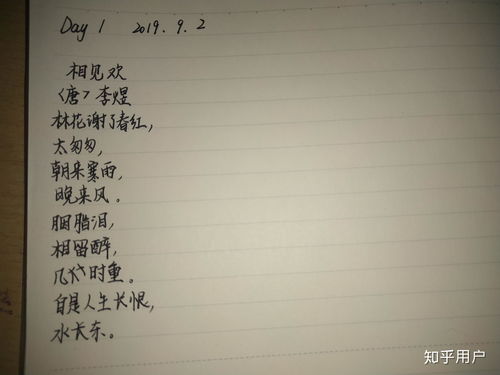 Day 1 2019.9.2
相见欢
〈唐〉李煜
林花谢了春红，
太匆匆，
朝来寒雨，
晚来风。
胭脂泪，
相留醉，
几时重。
自是人生长恨，
水长东。
知乎用户